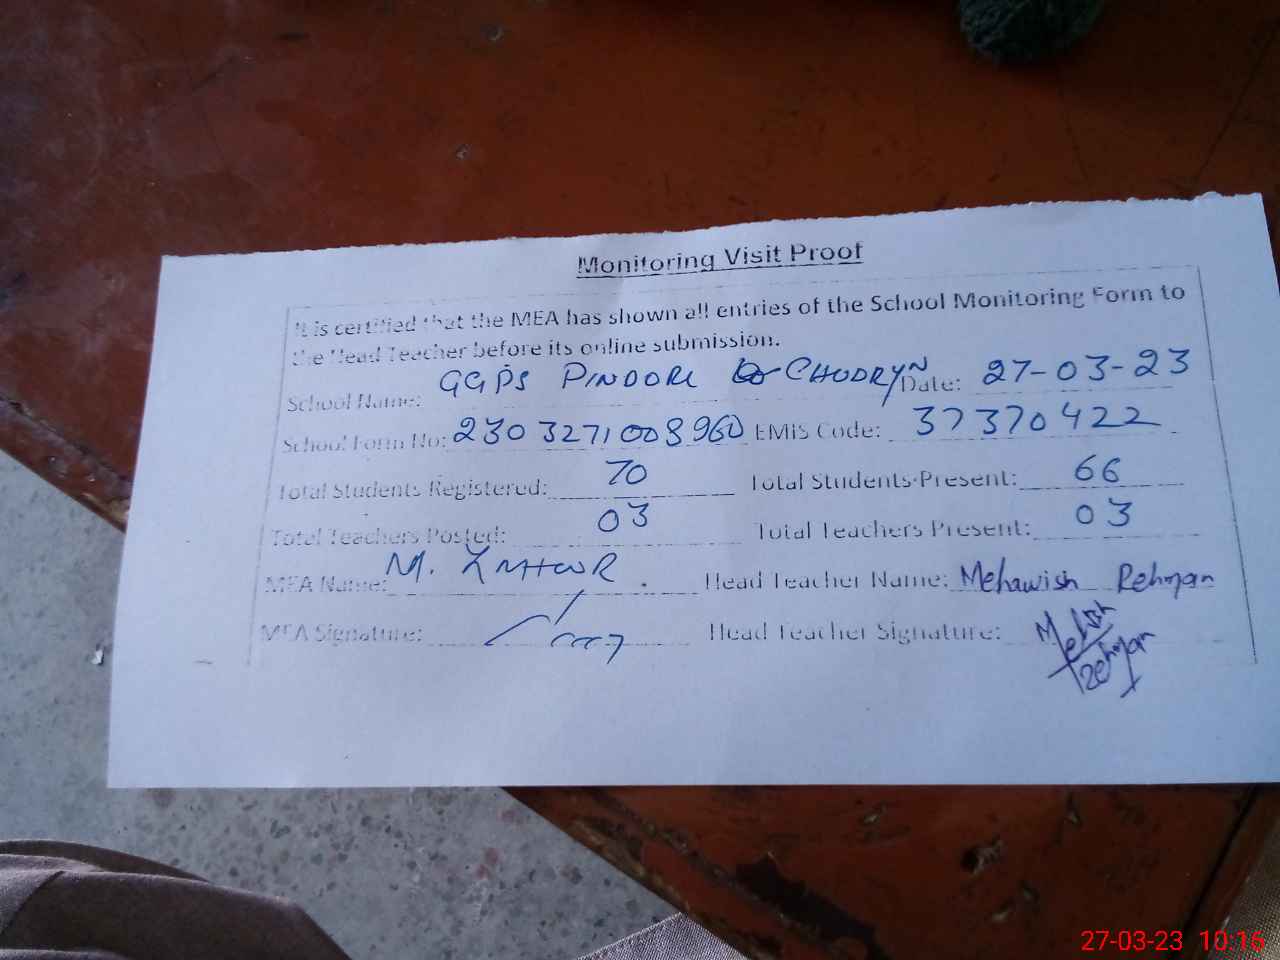 Monitoring Visit Proof
It is certified that the MEA has shown all entries of the School Monitoring Form to
the Head Teacher before its online submission.
School Name: GGPS PINDORI CHUDRYN Date: 27-03-23
School Form No: 2303271008960 EMIS Code: 37370422
Total Students Registered: 70 Total Students Present: 66
Total Teachers Posted: 03 Total Teachers Present: 03
MEA Name: M. Head Teacher Name: Mehawish Rehman
MEA Signature: Head Teacher Signature: Mehwish
Rehman
27-03-23 10:16